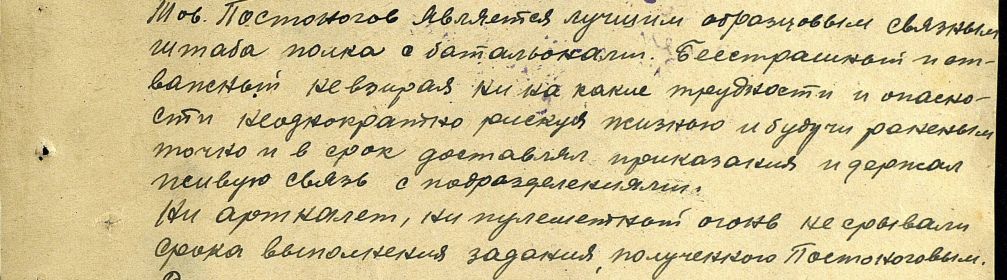 Тов. Постоногов является лучшим образцовым связным
штаба полка с батальонами. Бесстрашный и от-
важный невзирая ни на какие трудности и опасно-
сти неоднократно рискуя жизнью и будучи раненым
точно и в срок доставлял приказания и держал
живую связь с подразделениями.
Ни артналет, ни пулеметный огонь не срывали
срока выполнения задания, полученного Постоноговым.